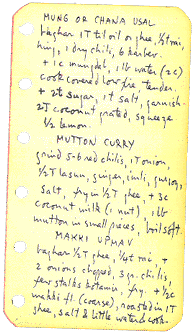 MUNG OR CHANA USAL
Vaghar 1T til oil or ghee, ½t rai
hing, 1 dry chili, 6 karber.
+ 1c mung dal, 1 lb water (2c)
cook covered low fire, tender.
+ 2t sugar, 1t salt, garnish
2T coconut grated, squeeze
½ lemon.
MUTTON CURRY
grind 5-6 red chilis, 1T onion,
½T lasun, ginger, imli, 
salt, fry in ½T ghee, + 3c
coconut milk (1 nut), 1 lb
mutton in small pieces, boil soft.
MAKKI UPMAV
Vaghar ½T ghee, ¼t rai, +
2 onions chopped, 3 gr. chilis,
few stalks kotamir, fry. + ½c
makki fl. (coarse), roasted in 1T
ghee, salt & little water & cook.